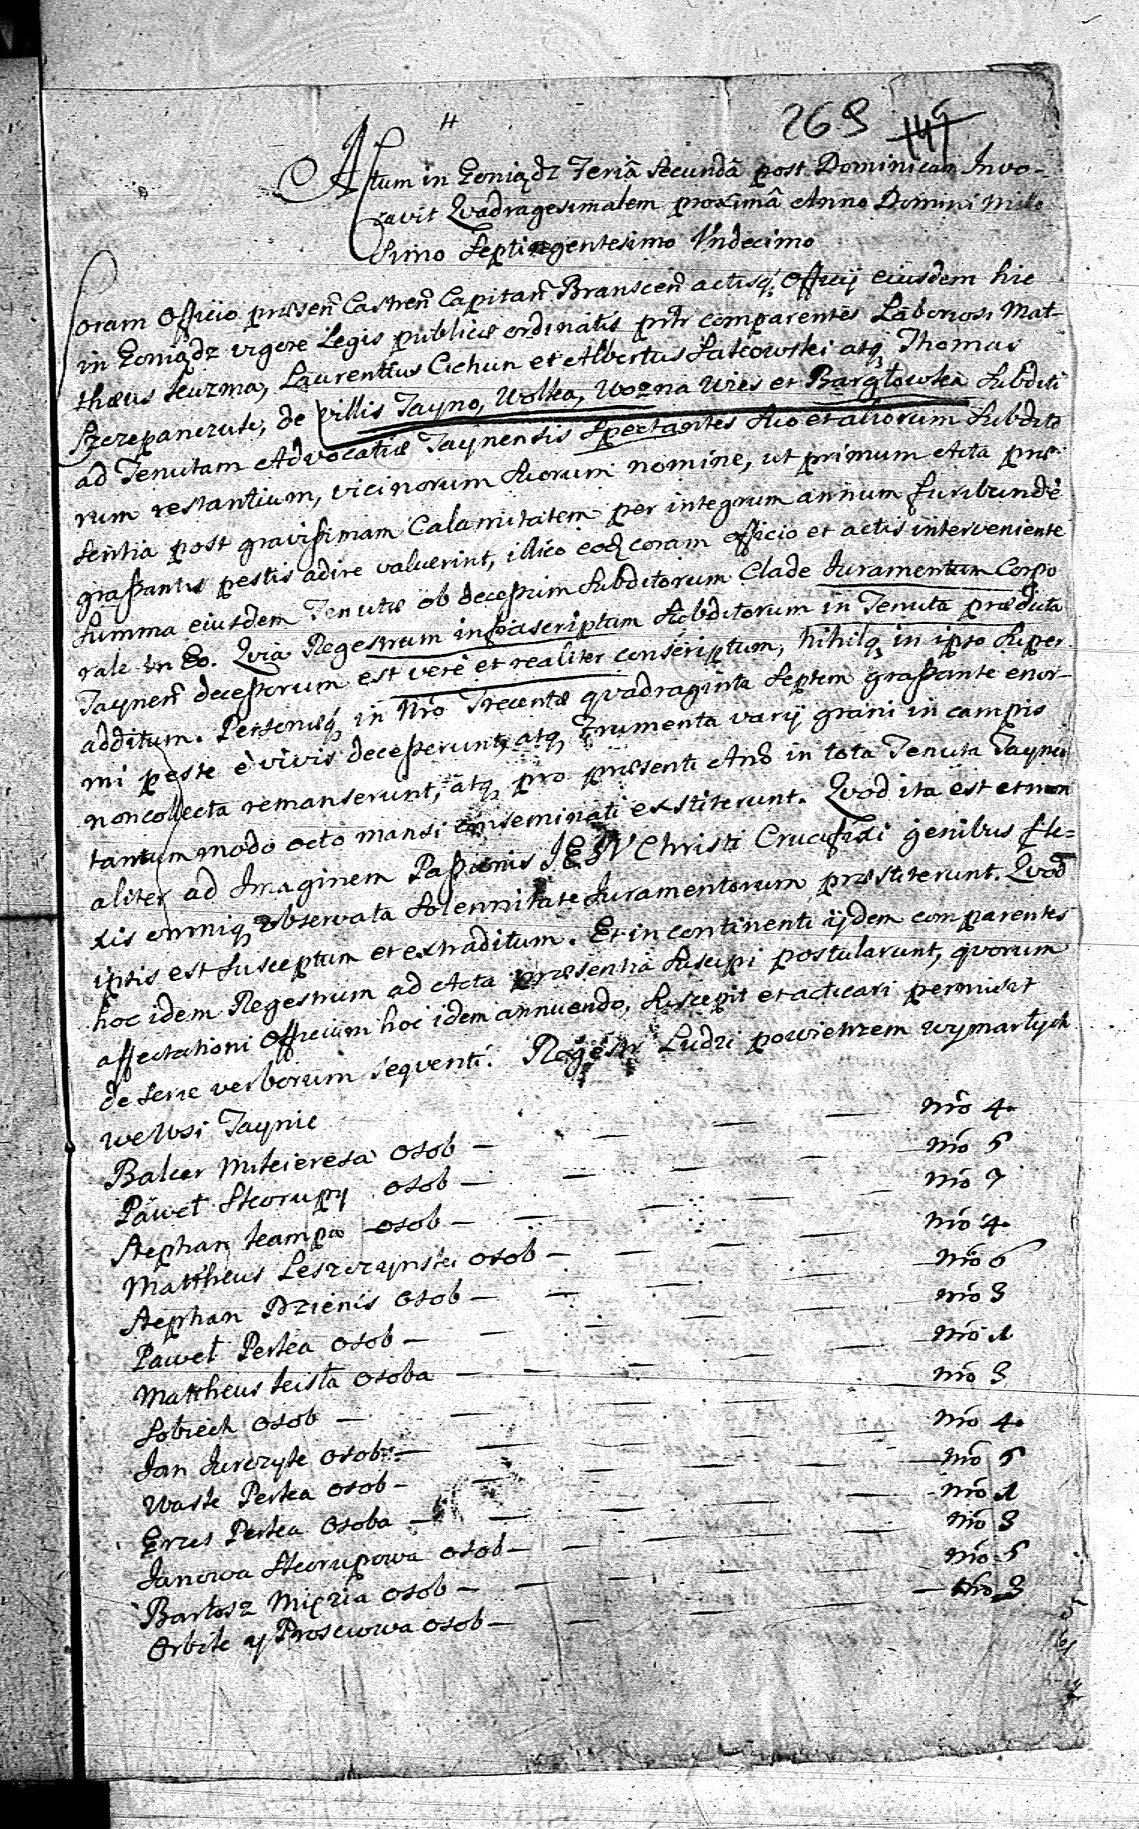 4
269 145
Actum in Goniądz Feriâ secundâ post Dominicam Invo-
cavit Qvadragesimalem proximâ Anno Domini Mille
simo Septingentesimo Vndecimo
Coram Officio præsen̄ Castren̄ Capitan̄ Branscen̄ actisq́; Officij eiusdem hic
in Goniądz vigore Legis publicæ ordinatis pntr comparentes Laboriosi Mat-
thæus Kuzma, Laurentius Cichun et Albertus Sakowski atq; Thomas
Szczepanczuk, de villis Tayno, Wolka, Wozna Wies et Bargłowka Subditi
ad Tenutam Advocatiæ Taynensis Spectantes Suo et aliorum Subdito
rum restantium, vicinorum Suorum nomine, ut primum Acta præ-
sentia post gravissimam Calamitatem per integrum annum furibundè
grassantis pestis adire valuerint, illico eoq; coram officio et actis interveniente
Summa eiusdem Tenutæ ob decessum Subditorum Clade Juramentum Corpo
rale in Eo. Qvia Regestrum infrascriptum Subditorum in Tenuta prædicta
Taynen̄ decessorum est verè et realiter conscriptum, nihilq; in ipso Super
additum. Personæq́; in Nr̄o Trecentæ qvadraginta Septem grassante enor-
mi peste è vivis decesserunt, atq; Frumenta varij grani in campis
noncollecta remanserunt, atq; pro præsenti Anō in tota Tenuta Taynen̄
tantummodo octo mansi inseminati exstiterunt. Qvod ita est et non
aliter ad Imaginem Passionis JESV Christi Crucifixi genibus fle-
xis omniq; observata Solennitate Juramentorum præstiterunt. Qvod
ipsis est Susceptum et extraditum. Et in continenti ijdem comparentes
hoc idem Regestrum ad Acta præsentia Suscipi postularunt, qvorum
affectationi Officium hoc idem annuendo, Suscepit et acticari permisit
de serie verborum seqventi. Regestr Ludzi powietrzem wymarłych
we Wsi Taynie
Balcer Mikieresa osob — Nrō 4.
Páweł Skorupy osob — Nrō 5
Stephan Kampa osob — Nrō 7
Mattheus Leszczynski osob — Nrō 4.
Stephan Dzienis osob — Nrō 6
Paweł Perka osob — Nrō 3
Mattheus Kisła osoba — Nrō 1
Sobiech osob — Nrō 3
Jan Jurczyk osob — Nrō 4.
Wask Perka osob — Nrō 5
Grzes Perka osoba — Nrō 1
Janowa Skorupowa osob — Nrō 3
Bartosz Miezia osob — Nrō 5
Orbik y Proscowa osob — Nrō 3